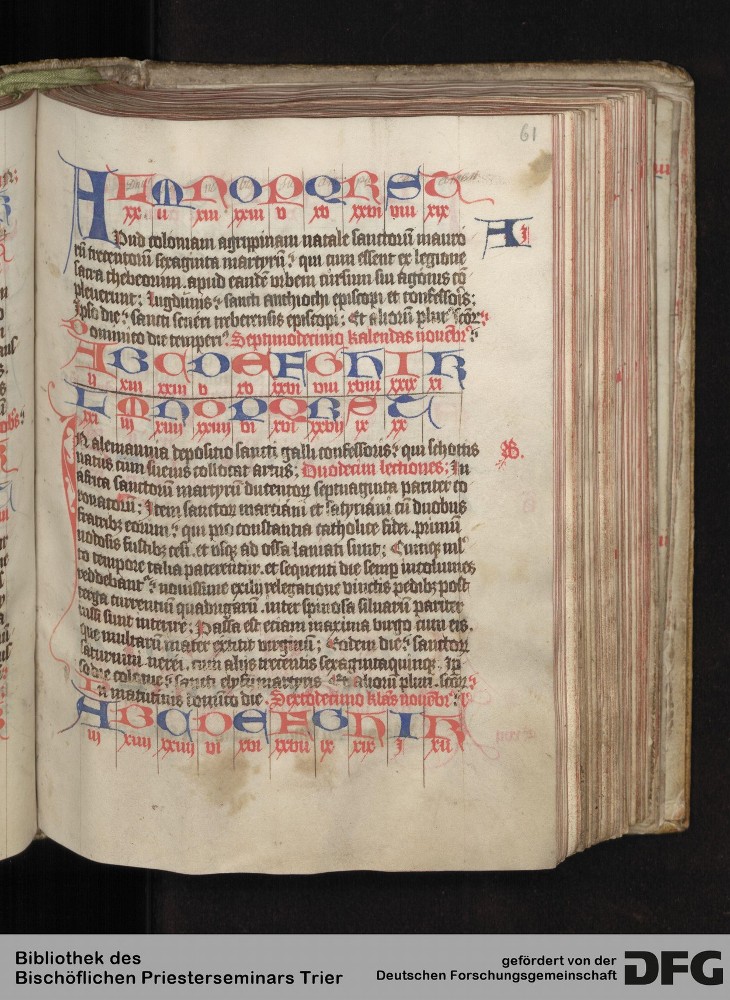 61
L M N O P Q R S T
xx ii xiii xxiiii v xv xxvi viii xix
A
Apud coloniam agrippinam natale sanctorū mauro
rū trecentorū sexaginta martyrū? qui cum essent ex legione
sacra thebeorum. apud eandē vrbem cursum sui agonis cō
pleuerunt; lugdunis? sancti anthiochi episcopi et confessoris;
Ipso die? sancti seueri treberensis episcopi; Et aliorū plur
Septimodecimo kalendas nouēbr
A B C D E F G H I K
ii xiii xxiiii v xv xxvi viii xviii xxix xi
L M N O P Q R S T
xxi iii xiiii xxiiii vi xvi xxvii ix xx
B.
In alemannia depositio sancti galli confessoris? qui schottis
natus cum sueuis collocat artus; Duodecim lectiones; In
africa sanctorū martyrū ducentoȝ septuaginta pariter co
ronatorū; Item sanctoȝ marciani et satyriani cū duobus
fratribȝ eorum? qui pro constantia catholice fidei. primū
nodosis fustibȝ cesi. et vsqȝ ad ossa laniati sunt; Cumqȝ ml
to tempore talia paterentur. et sequenti die semꝑ incolumes
reddebant? nouissime exilij relegatione vinctis pedibȝ post
terga currentiū quadrigarū. inter spinosa siluarū pariter
iussi sunt interire; Passa est eciam maxima virgo cum eis.
que multarū mater extitit virginū; Eodem die? sanctoȝ
saturnini nerei. cum alijs trecentis sexagintaquinqȝ. Ip
so die colonie? sancti elyfij martyris Et aliorū pluri.
In matutinis cōmuto die. Sextodecimo klās nouēbr
A B C D E F G H I K
iii xiiii xxiiii vi xvi xxvii ix xix I xii
Bibliothek des
Bischöflichen Priesterseminars Trier
gefördert von der
Deutschen Forschungsgemeinschaft
DFG